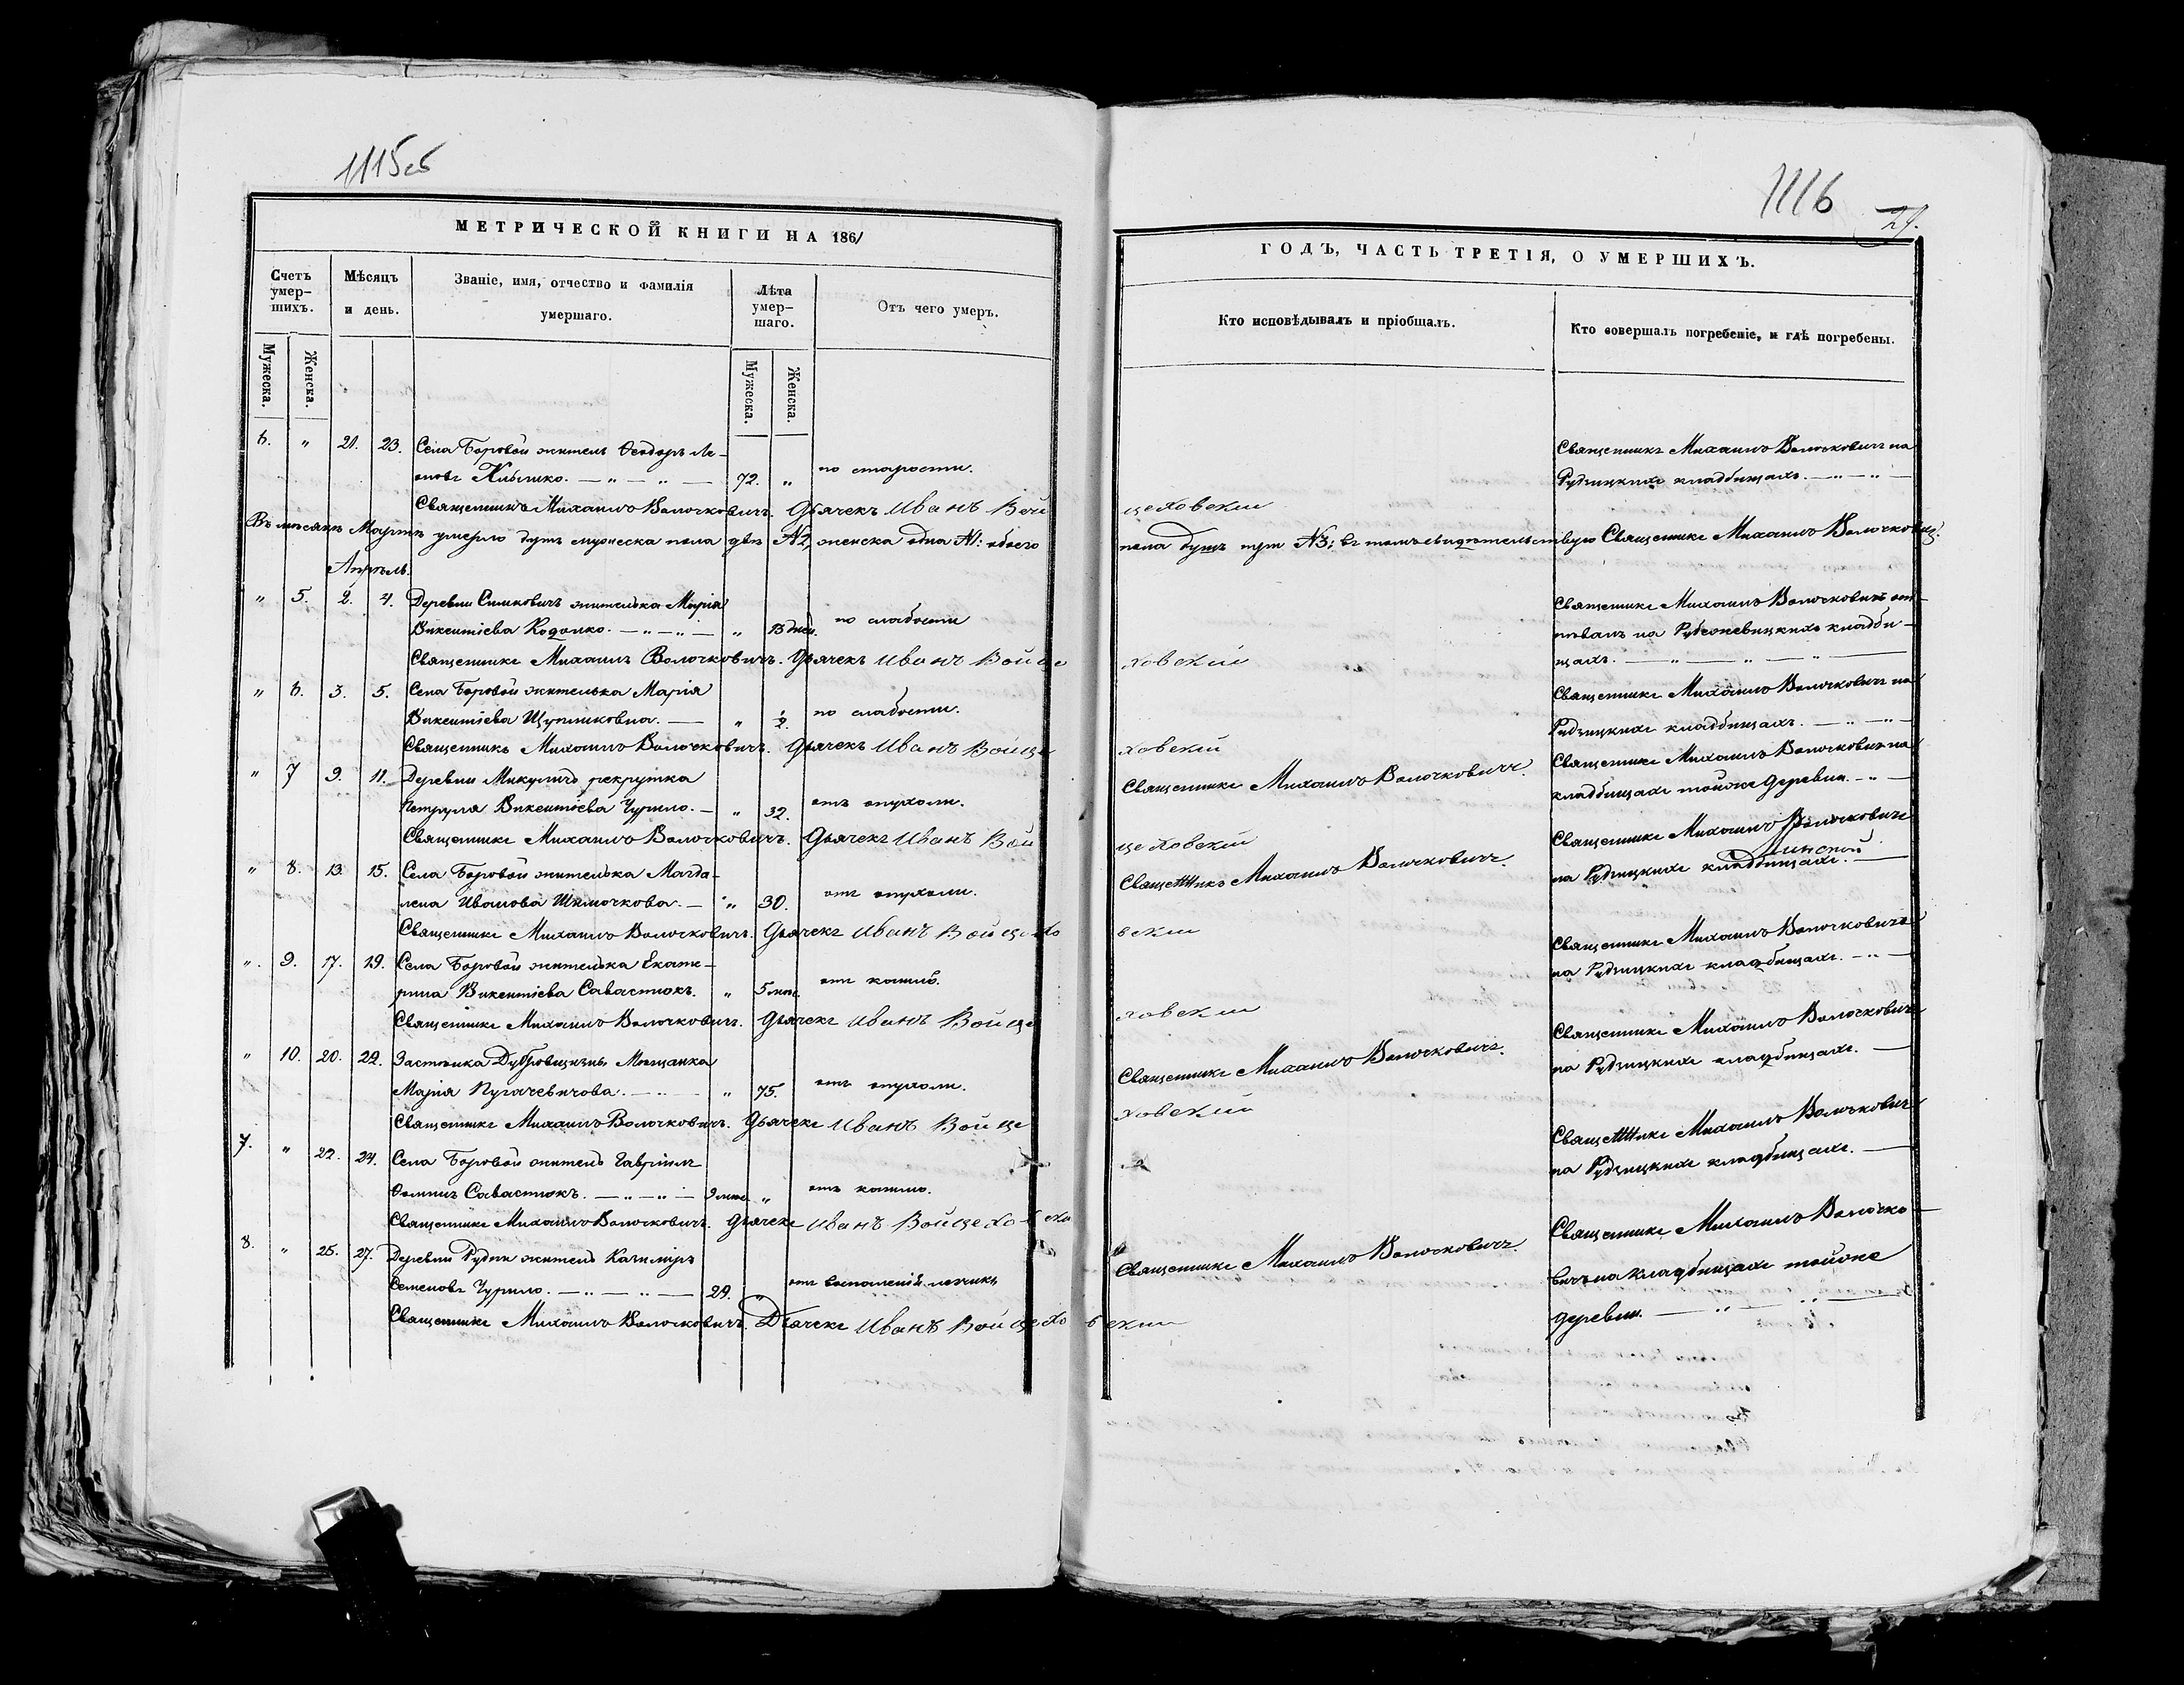 1115об
МЕТРИЧЕСКОЙ КНИГИ НА 1861
Счетъ умер-шихъ.
Мѣсяцъ и день.
Званіе, имя, отчество и фамилія умершаго.
Лѣта умер-шаго.
Отъ чего умеръ.
Мужеска.
Женска.
Мужеска.
Женска.
6. " 21. 23. Села Боровой житель Ѳеодоръ Ле-
72. " по старости.
Священникъ Михаилъ Волочковичъ. Дьячекъ Иванъ Вой
Въ месяцѣ Мартѣ умерло душъ мужеска пола двѣ №2, женска одна №1: обоего
Апрѣль.
" 5. 2. 4. Деревни Симковичъ жителька Марія
Викентіева Кодолко. — " — " — " 13 дней. по слабости
Священникъ Михаилъ Волочковичъ. Дьячекъ Иванъ Войце
" 6. 3. 5. Села Боровой жителька Марія
Викентіева Щупликовна. — " ½. по слабости.
Священникъ Михаилъ Волочковичъ. Дьячекъ Иванъ Войце
" 7 9. 11. Деревни Микуличъ рекрутка
Петруля Викентіева Чурило. — " 32. отъ опухоли.
Священникъ Михаилъ Волочковичъ. Дьячекъ Иванъ Вой
" 8. 13. 15. Села Боровой жителька Магда-
лена Иванова Шимочкова. — " 30. отъ опухоли.
Священникъ Михаилъ Волочковичъ. Дьячекъ Иванъ Войцехо
" 9. 17. 19. Села Боровой жителька Екате-
рина Викентіева Савастюкъ. " 5 мѣс. отъ кашлю.
Священникъ Михаилъ Волочковичъ. Дьячекъ Иванъ Войце
" 10. 20. 22. Застѣнка Дубровщизны Мѣщанка
Марія Пугачевичова. — " 75. отъ опухоли.
Священникъ Михаилъ Волочковичъ. Дьячекъ Иванъ Войце
7. " 22. 24. Села Боровой житель Гавріилъ
Ѳоминъ Савастюкъ. — " — " — 9 мѣс. " отъ кашлю.
Священникъ Михаилъ Волочковичъ. Дьячекъ Иванъ Войцехо
8. " 25. 27. Деревни Рудни житель Казиміръ
Семеновъ Чурило. — " — " — 29. "
Священникъ Михаилъ Волочковичъ. Дьячекъ Иванъ Войцехо
1116
29.
ГОДЪ, ЧАСТЬ ТРЕТІЯ, О УМЕРШИХЪ.
Кто исповѣдывалъ и пріобщалъ.
Кто совершалъ погребеніе, и гдѣ погребены.
Священникъ Михаилъ Волочковичъ на
Рудзицкихъ кладбищахъ. — " — " —
цеховскій
пола душъ три №3; въ томъ свидѣтельствую Священникъ Михаилъ Волочковичъ.
Священникъ Михаилъ Волочковичъ от-
пѣвалъ на Рубежевицкихъ кладби-
щахъ. — " — " — " —
ховскій
Священникъ Михаилъ Волочковичъ на
Рудзицкихъ кладбищахъ. — " — " —
ховскій
Священникъ Михаилъ Волочковичъ.
Священникъ Михаилъ Волочковичъ на
кладбищахъ тойже деревни. — " —
цеховскій
Священникъ Михаилъ Волочковичъ.
Священникъ Михаилъ Волочковичъ
на Рудзицкихъ кладбищахъ. —
вскій
Священникъ Михаилъ Волочковичъ
на Рудзицкихъ кладбищахъ. — " —
ховскій
Священникъ Михаилъ Волочковичъ.
Священникъ Михаилъ Волочковичъ
на Рудзицкихъ кладбищахъ. —
ховскій
Священникъ Михаилъ Волочковичъ
на Рудзицкихъ кладбищахъ. —
Священникъ Михаилъ Волочковичъ.
Священникъ Михаилъ Волочко-
вичъ на кладбищахъ тойже
деревни. — " — " —
вскій